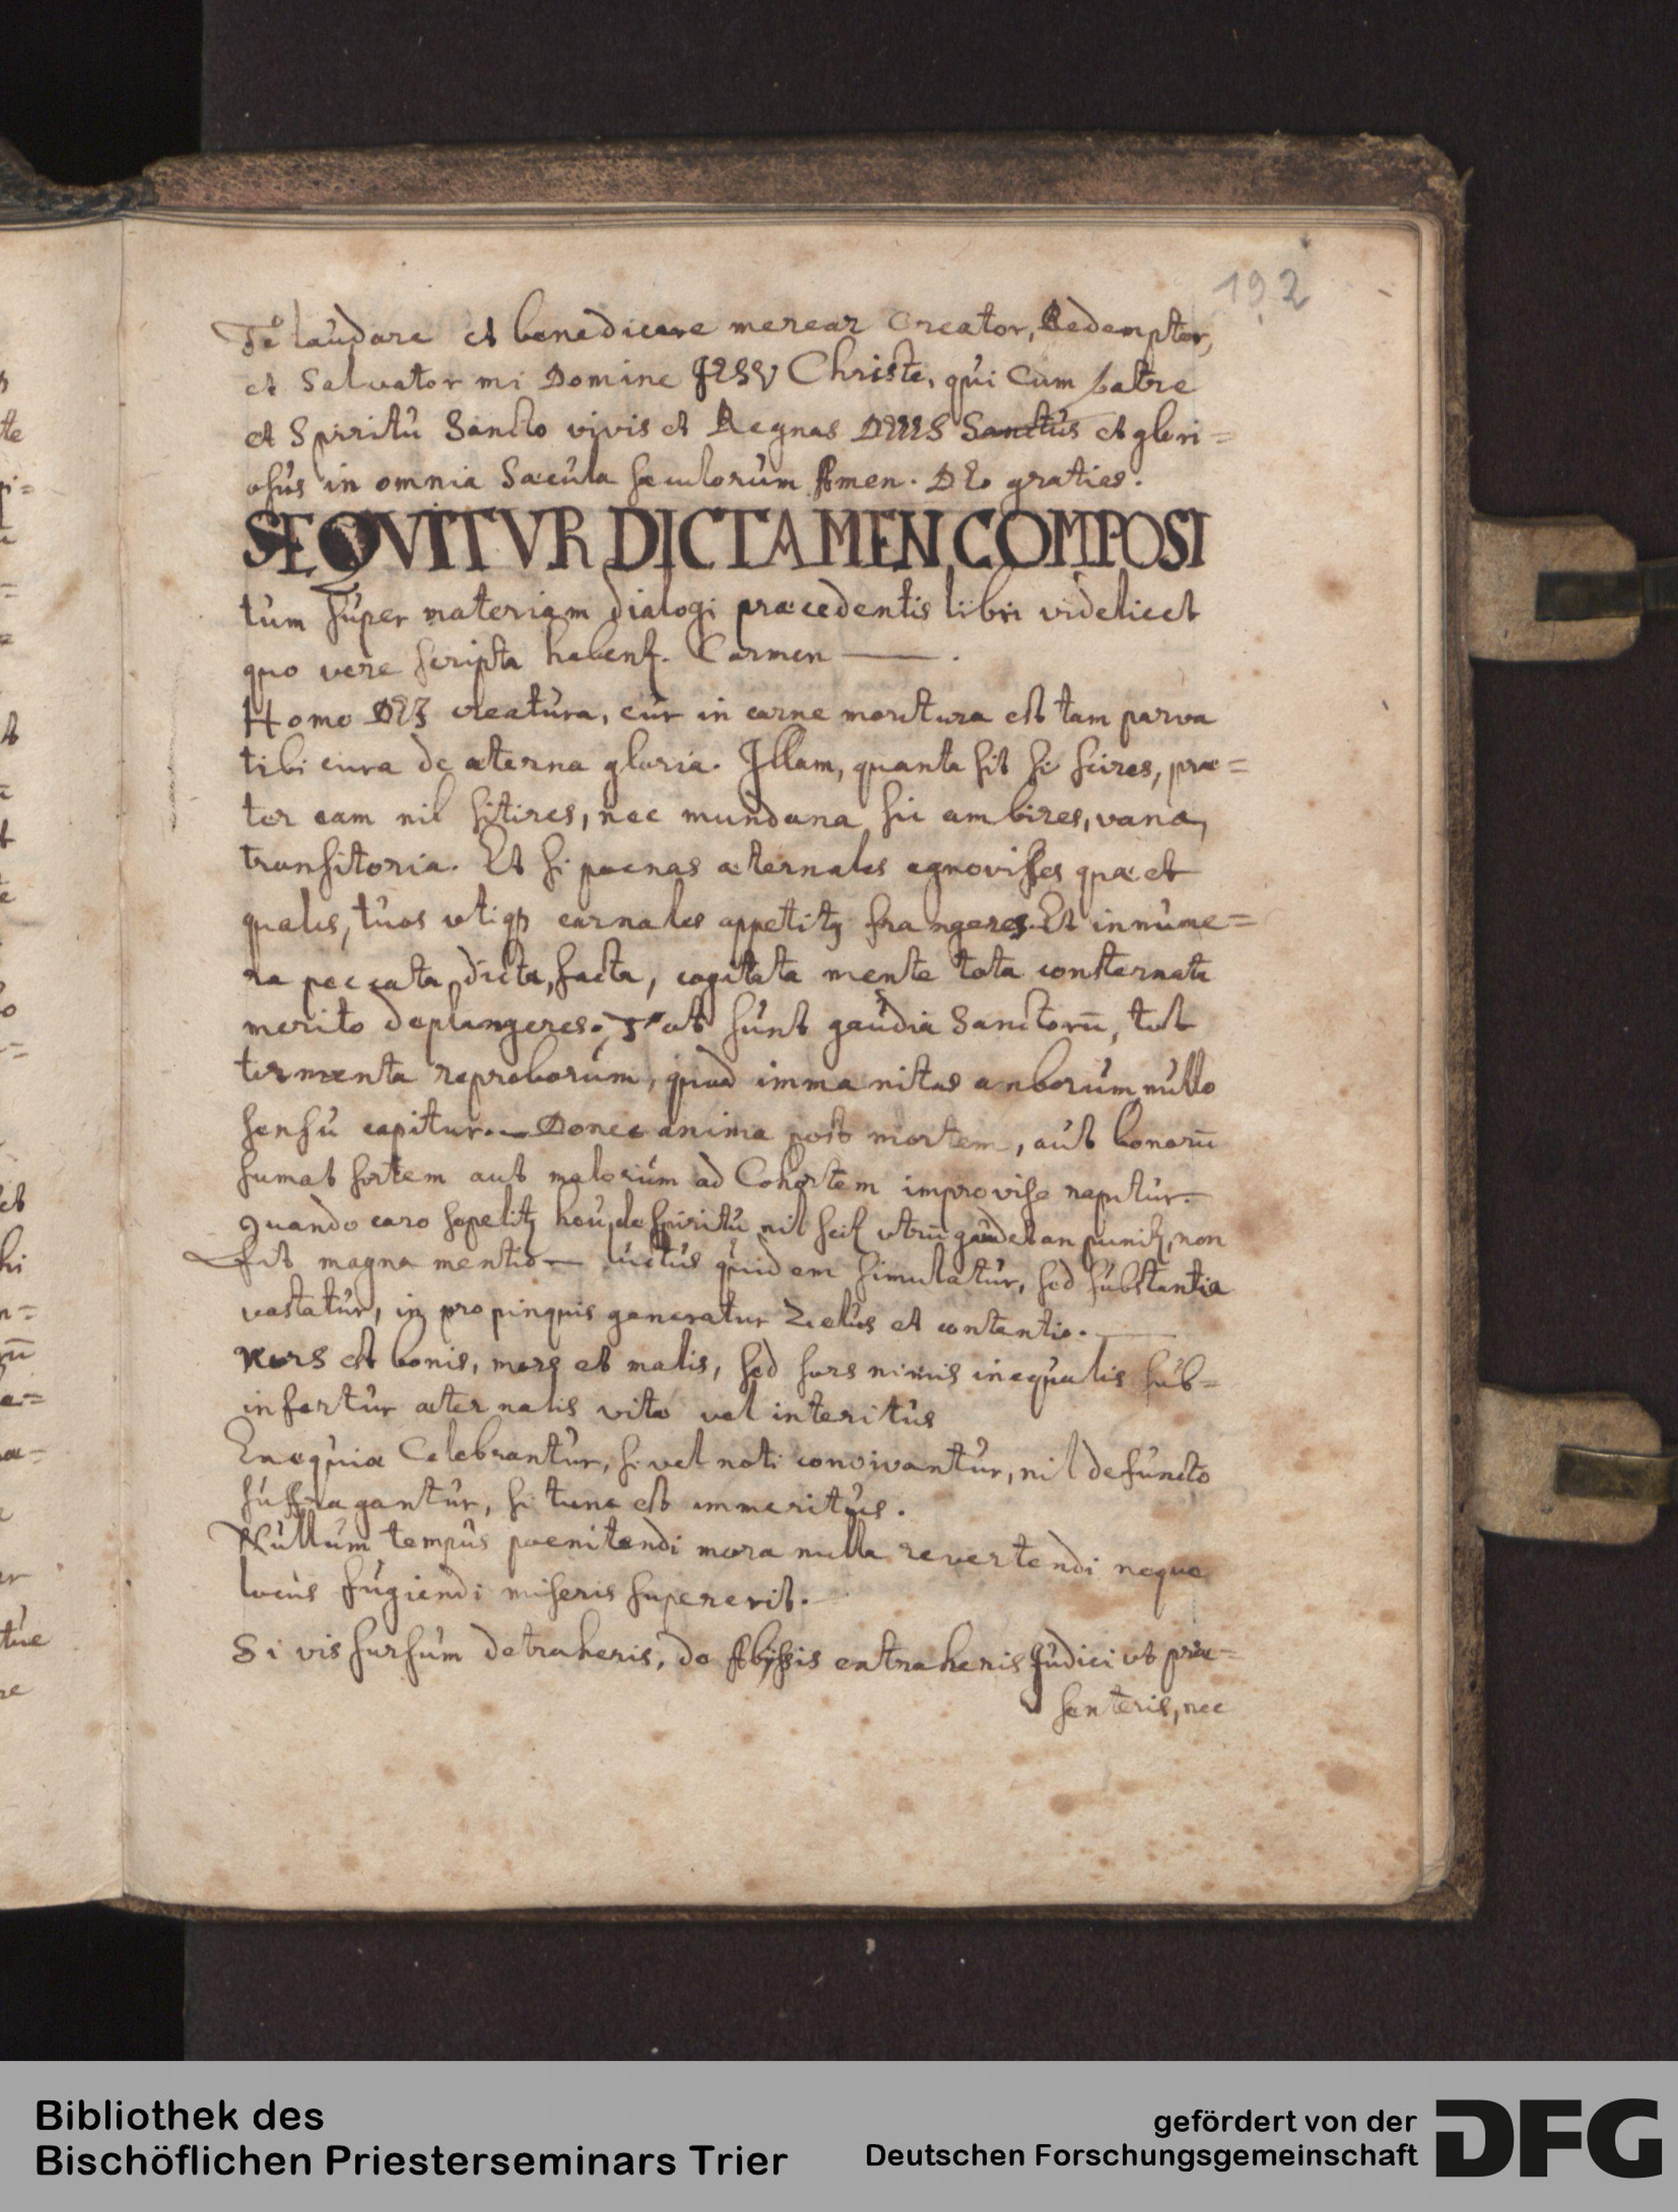 192
Te laudare et benedicere merear Creator, Redemptor,
et Salvator mi Domine JESV Christe, qui Cum patre
et Spiritu Sancto vivis et Regnas DEUS Sanctus et glori=
osus in omnia Saecula saeculorum Amen. DEo gratias.
SEQVITVR DICTAMEN COMPOSI
tum super materiam dialogi praecedentis libri videlicet
quo vere scripta habent. Carmen
Homo DEI creatura, cur in carne moritura est tam parva
tibi cura de aeterna gloria. Illam, quanta sit si scires, prae=
ter eam nil sitires, nec mundana sic ambires, vana,
transitoria. Et si poenas aeternales agnovisses quae et
quales, tuos utiqꝫ carnales appetitꝫ frangeres. Et innume=
ra peccata, dicta, facta, cogitata mente tota consternata
merito deplangeres. Tot sunt gaudia Sanctorū, tot
tormenta reproborum, quod immanitas amborum nullo
sensu capitur. Donec anima post mortem, aut bonorū
sumat sortem aut malorum ad Cohortem improvise rapitur.
Quando caro sepelitꝫ heu, de spiritu nil scitꝫ utrū gaudet an punitꝫ, non
fit magna mentio luctus quidem simulatur, sed substantia
vastatur, in propinquis generatur Zelus et contentio.
Mors est bonis, mors et malis, sed sors nimis inaequalis sub=
infertur aeternalis vita vel interitus
Exequiae Celebrantur, si vel noti convivantur, nil defuncto
suffragantur, si tunc est immeritus.
Nullum tempus poenitendi mora nulla revertendi neque
locus fugiendi miseris supererit.
Si vis sursum detraheris, de Abissis extraheris Judici ut prae=
senteris, nec
Bibliothek des
Bischöflichen Priesterseminars Trier
gefördert von der
Deutschen Forschungsgemeinschaft
DFG